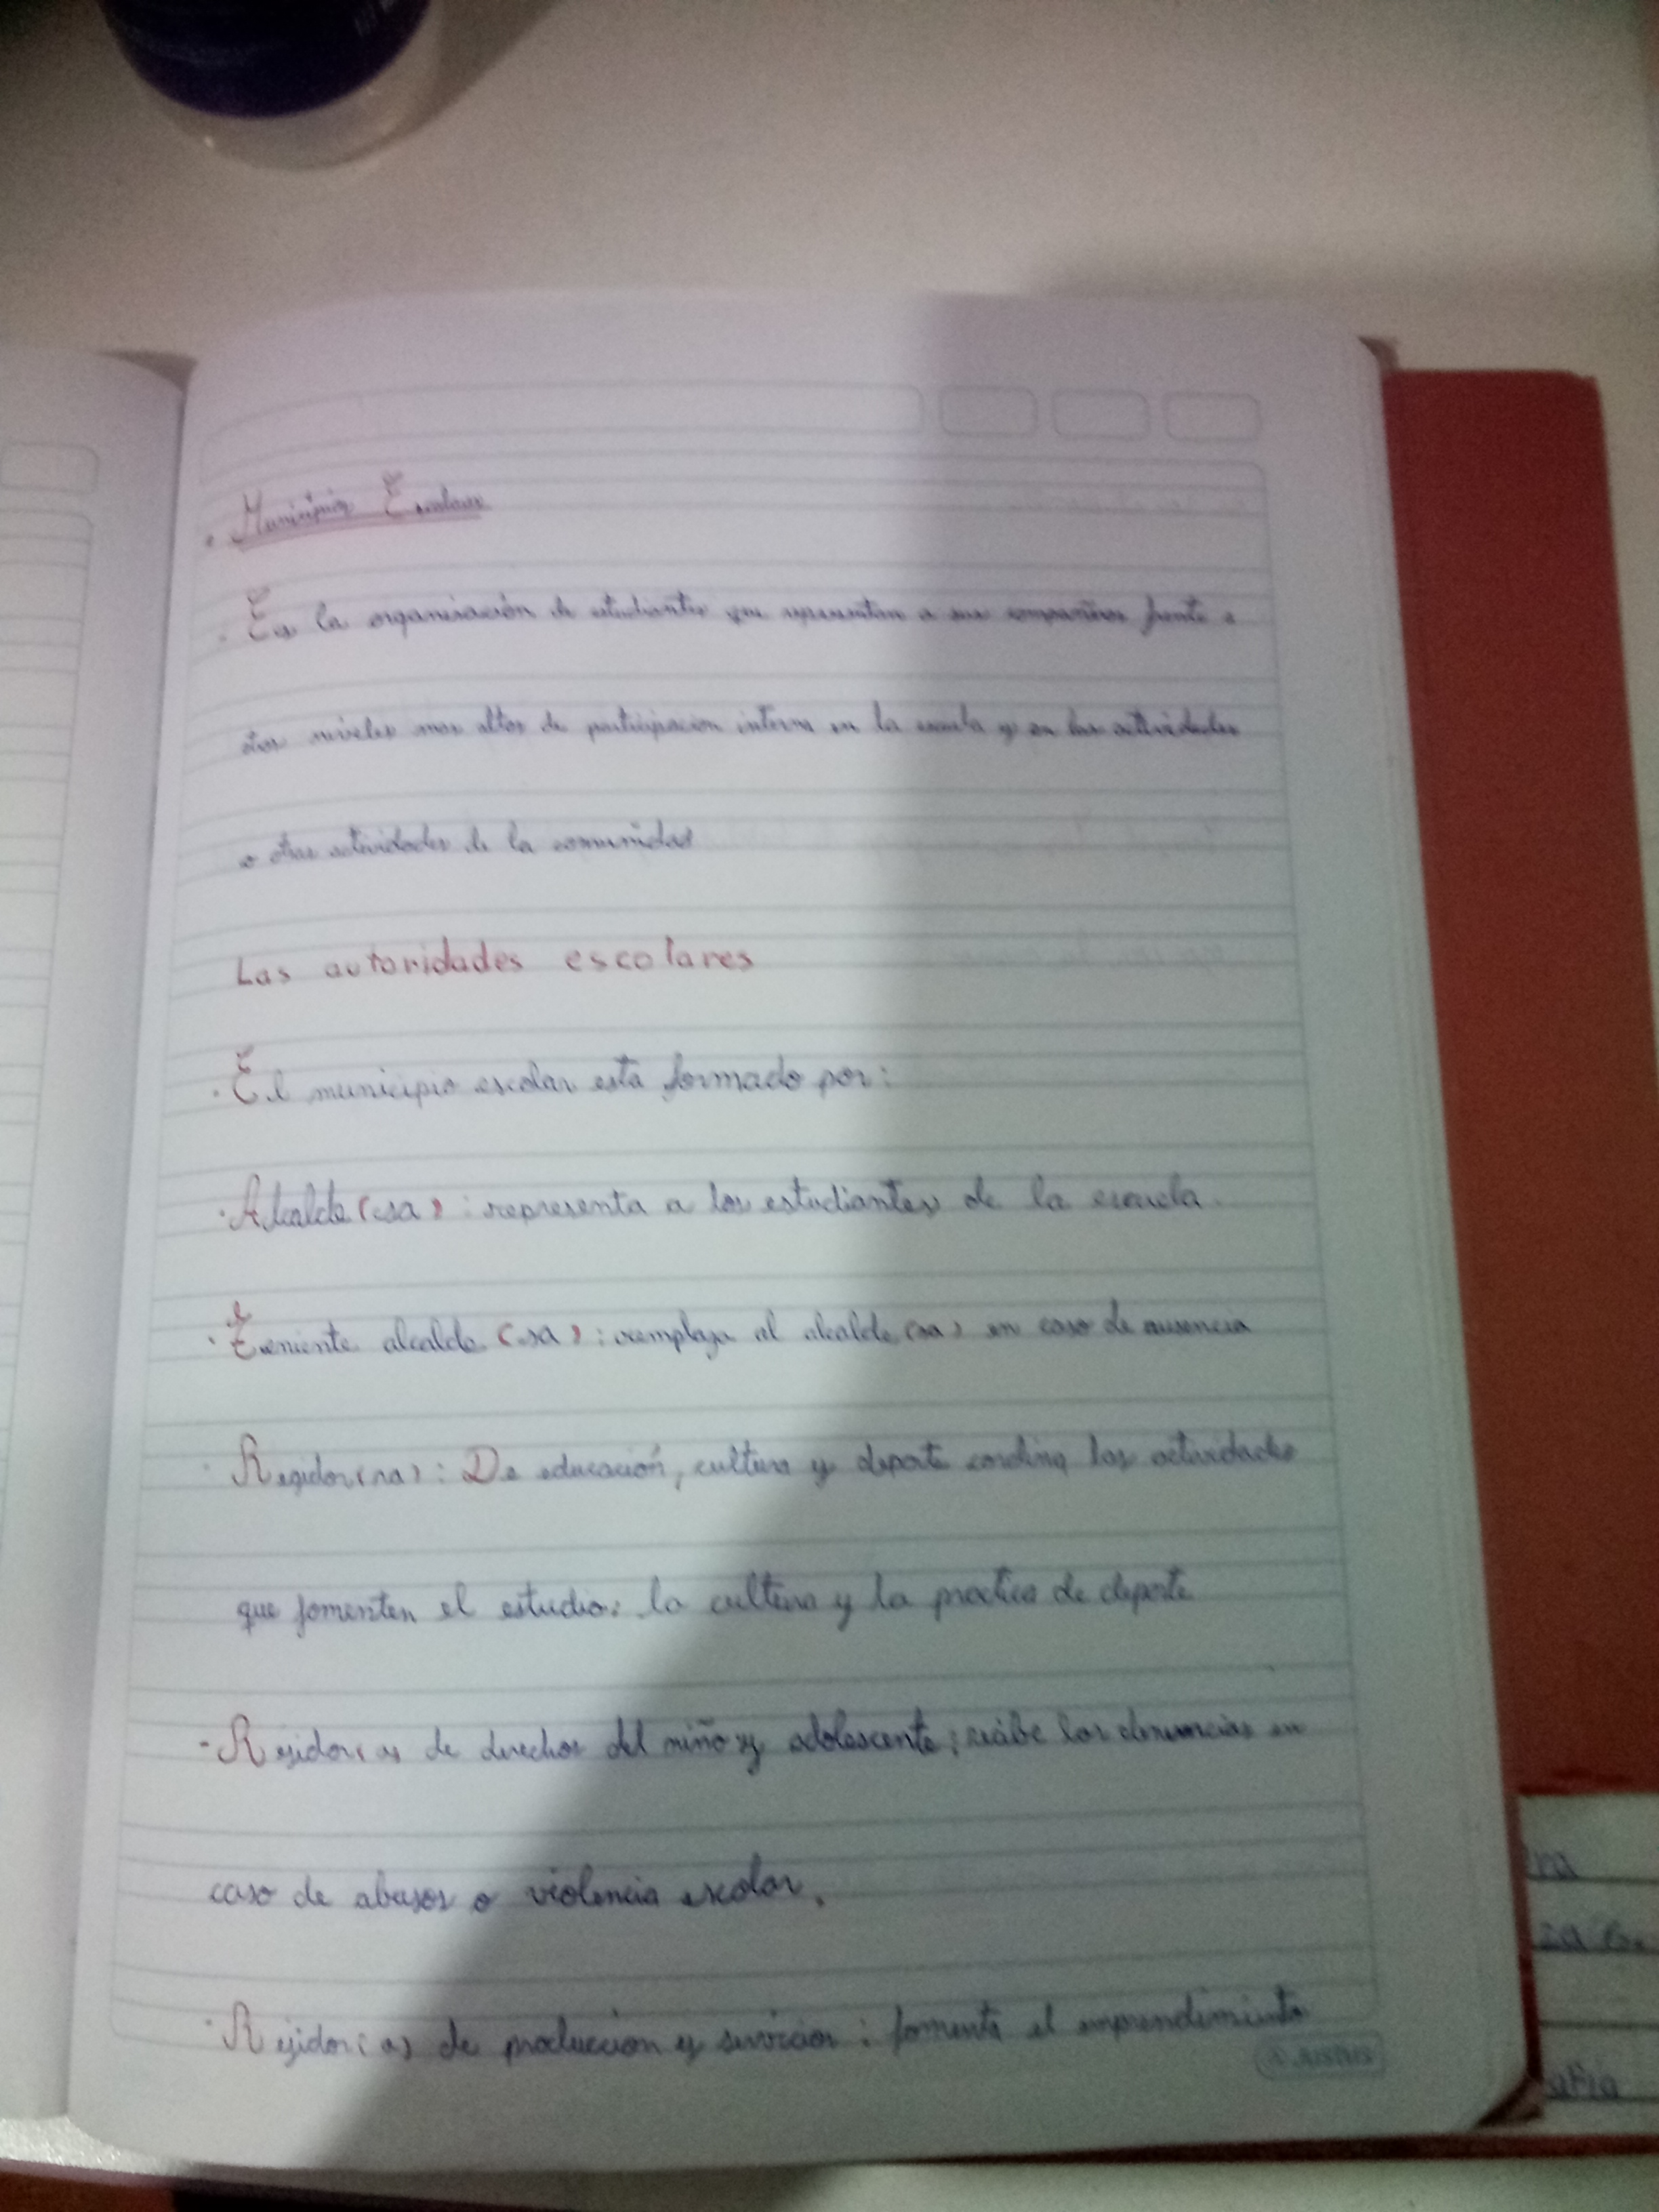 • Municipio Escolar
· Es la organización de estudiantes que representan a sus compañeros frente a
otros niveles mas altos de participacion interna en la escuela y en las actividades
o otras actividades de la comunidad
Las autoridades escolares
· El municipio escolar esta formado por:
· Alcalde (esa) : representa a los estudiantes de la escuela.
· Teniente alcalde (sa) : remplaza al alcalde (sa) en caso de ausencia
· Regidor(ra) : De educación, cultura y deporte cordina las actividades
que fomenten el estudio: la cultura y la practica de deporte
- Regidor(a) de derechos del niño y adolescente; recibe las denuncias en
caso de abusos o violencia escolar.
· Rejidor(a) de produccion y servicios : fomenta el emprendimiento
JUSTUS
ra
za
afia